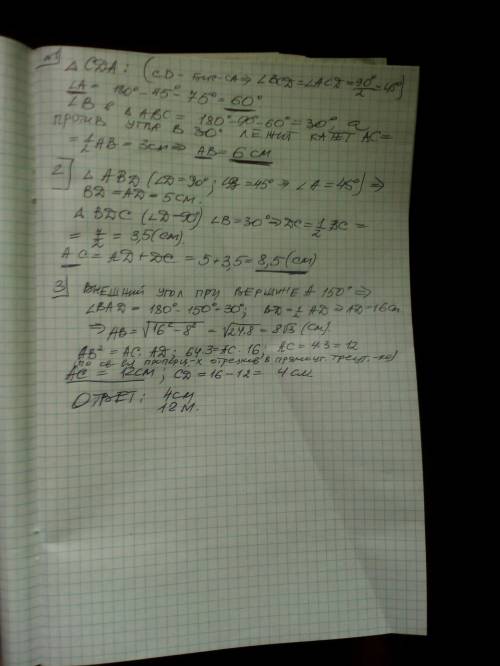 №1
△ CDA: (CD - бис-са ⇒ ∠BCD = ∠ACD = 90°/2 = 45°)
∠A = 180° - 45° - 75° = 60°
∠B в △ ABC = 180° - 90° - 60° = 30°, а
ПРОТИВ УГЛА В 30° ЛЕЖИТ КАТЕТ AC =
= 1/2 AB = 3см ⇒ AB = 6 см
2) △ ABD (∠D = 90°; ∠B = 45° ⇒ ∠A = 45°) ⇒
BD = AD = 5см.
△ BDC (∠D = 90°) ∠B = 30° ⇒ DC = 1/2 BC =
= 7/2 = 3,5 (см).
AC = AD + DC = 5 + 3,5 = 8,5 (см)
3) ВНЕШНИЙ УГОЛ ПРИ ВЕРШИНЕ A 150° ⇒
∠BAD = 180° - 150° = 30°; BD = 1/2 AD ⇒ AD = 16см
⇒ AB = √16² - 8² = √24·8 = 8√3 (см).
AB² = AC · AD; 64·3 = AC · 16; AC = 4·3 = 12
по св-ву пропорц-х отрезков в прямоуг. треуг-ке)
AC = 12см; CD = 16 - 12 = 4см
ОТВЕТ: 4см
12м.